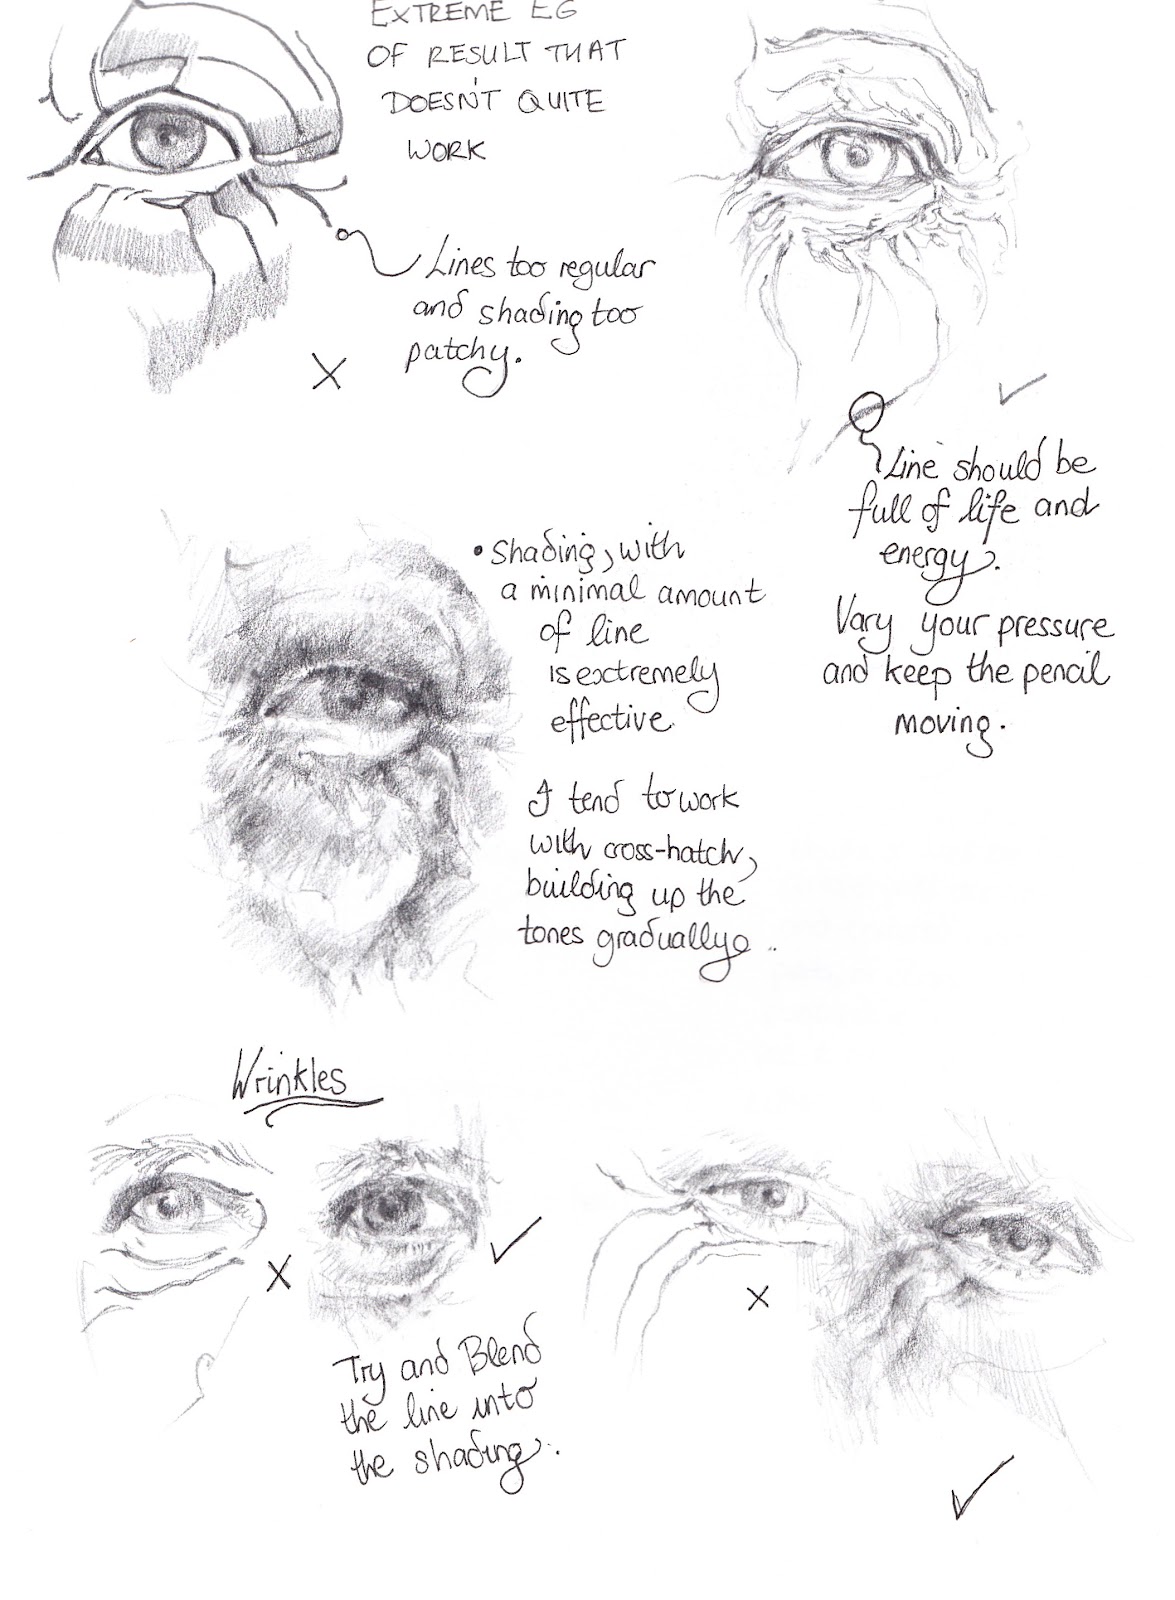 EXTREME EG
OF RESULT THAT
DOESN'T QUITE
WORK
Lines too regular
and shading too
patchy.
X
✓
Line should be
full of life and
energy.
Vary your pressure
and keep the pencil
moving.
• Shading, with
a minimal amount
of line
is extremely
effective.
I tend to work
with cross-hatch,
building up the
tones gradually.
Wrinkles
X
✓
Try and Blend
the line into
the shading.
X
✓